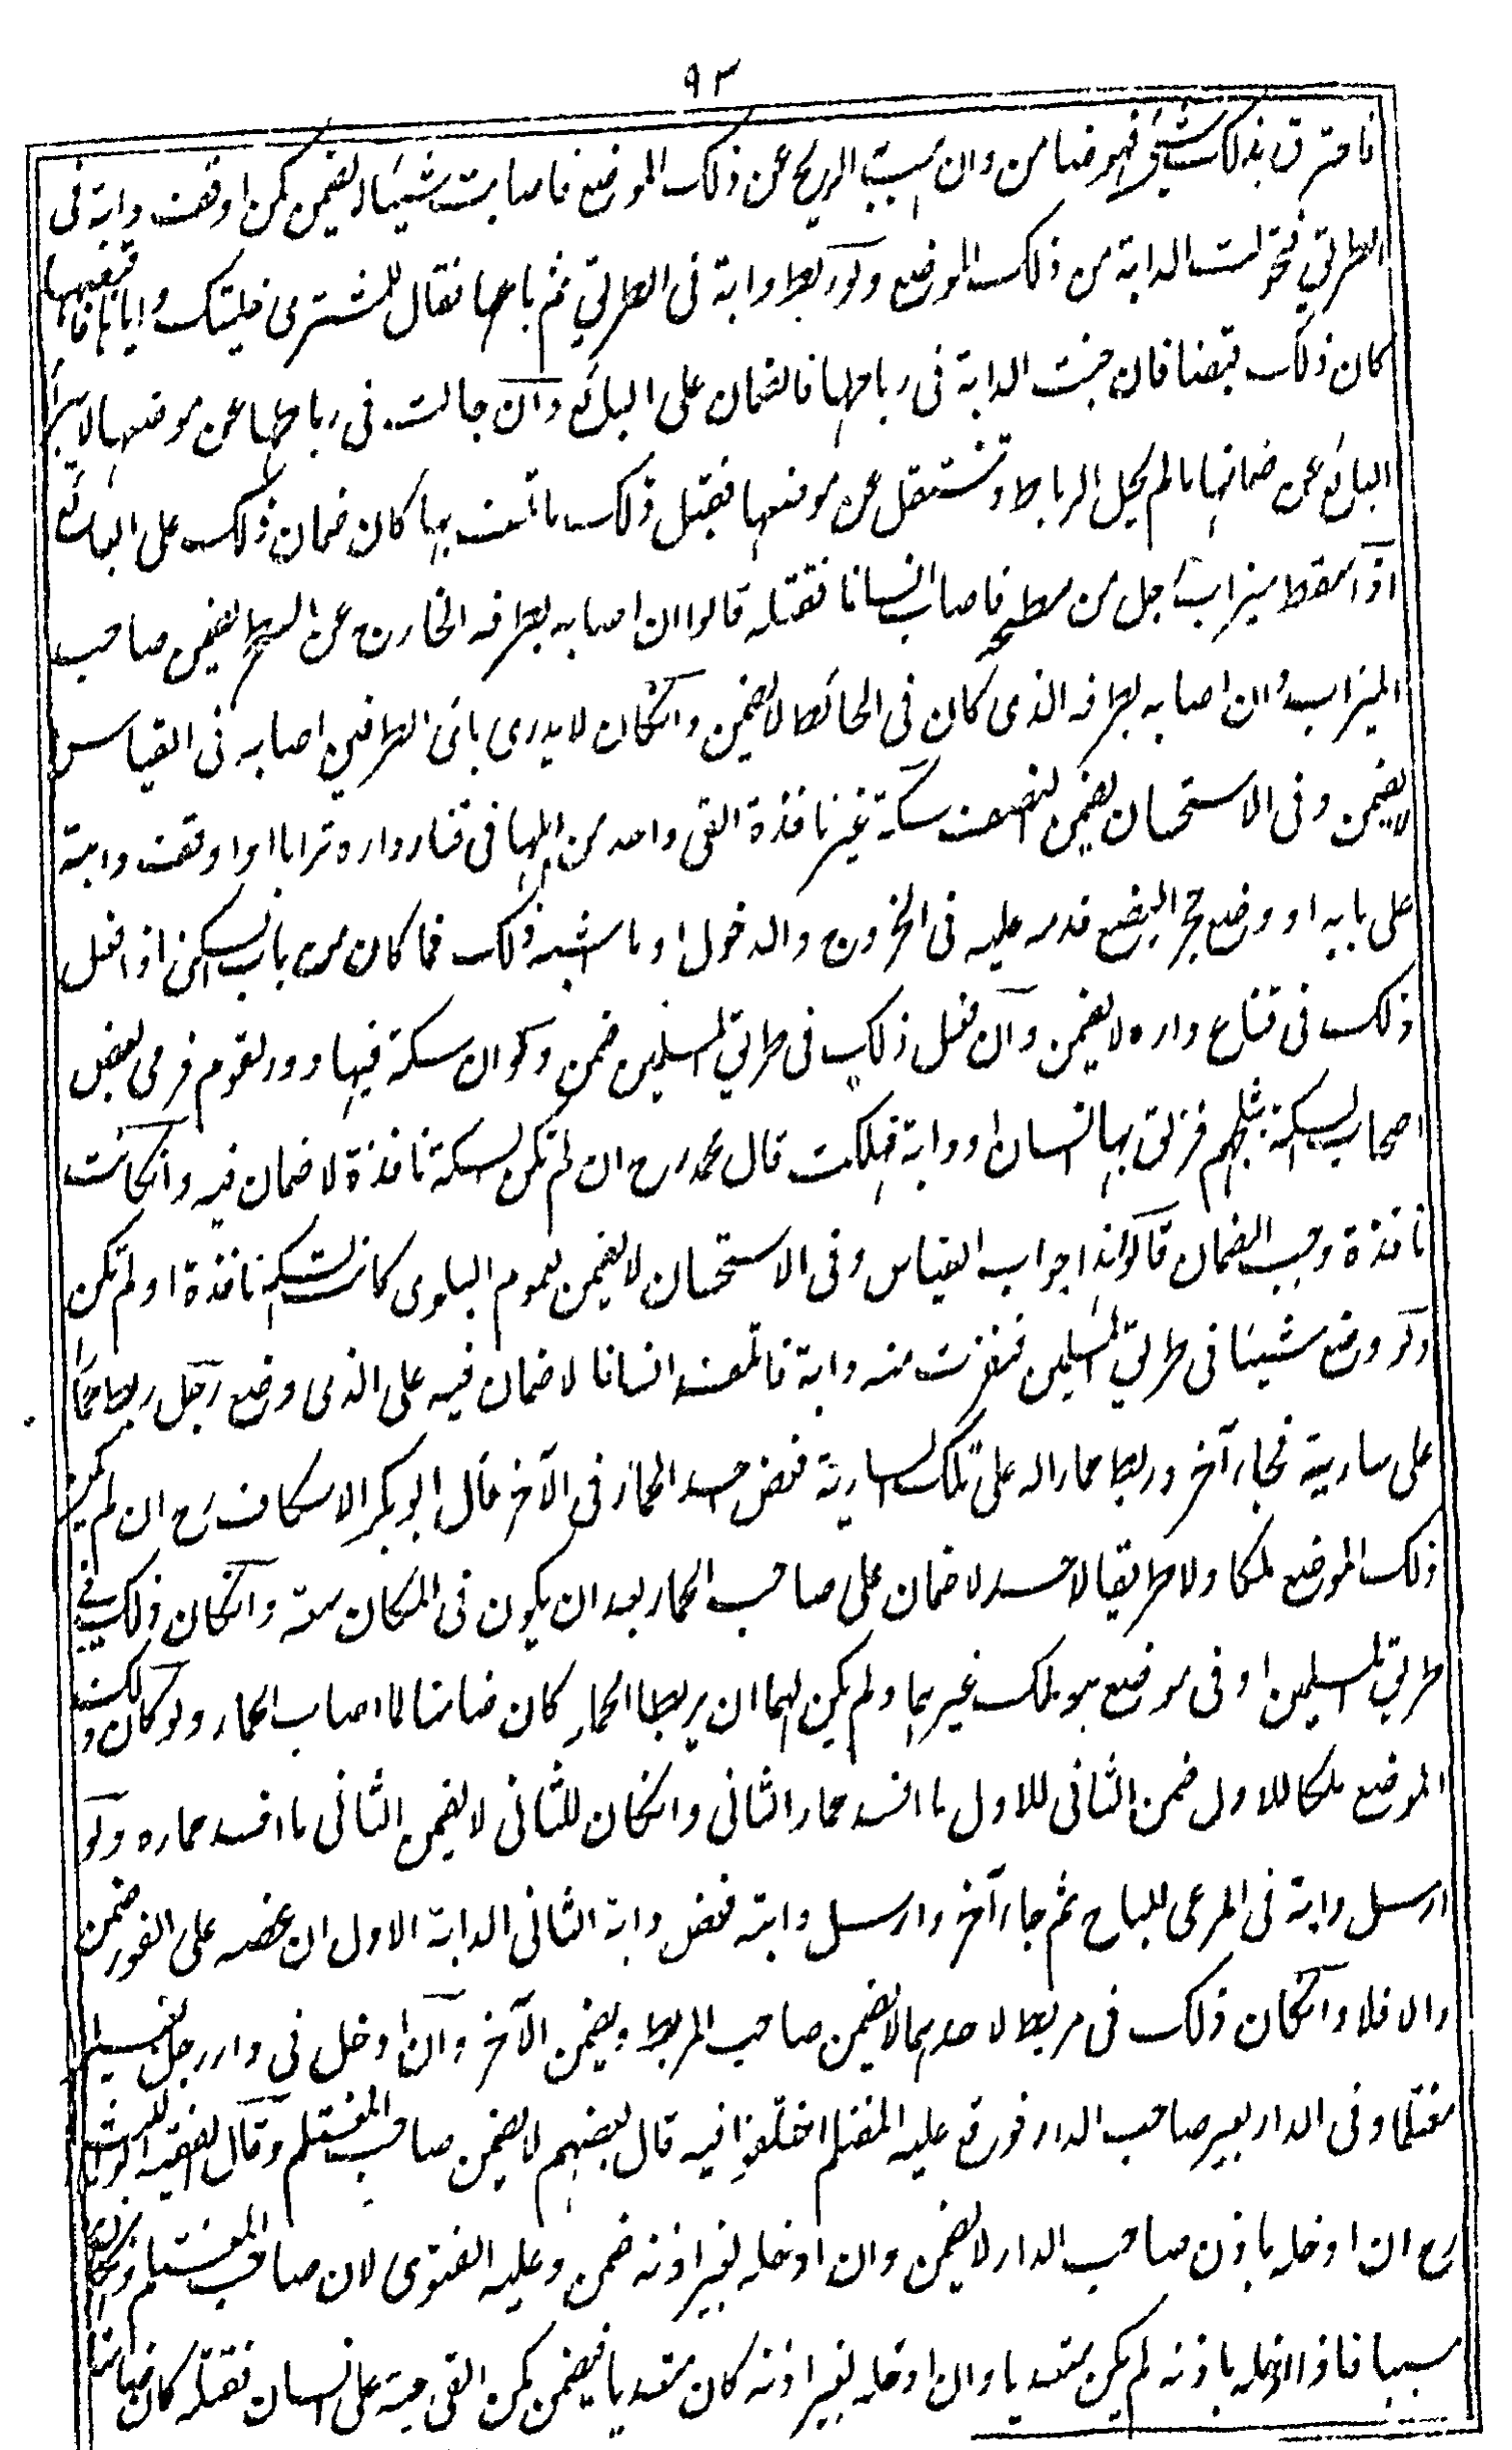 ٩٣
فاحترق بذلك شيئ فهو ضامن وان هبت الريح عن ذلك الموضع فاصابت شيئا لا يضمن كمن اوقف دابة فى
الطريق فتحولت الدابة من ذلك الموضع ولو ربط دابة فى الطريق ثم باعها فقال للمشترى خليتك واياها فاقبضها
كان ذلك قبضا فان جنت الدابة فى رباطها فالضمان على البائع وان جالت فى رباطها عن موضعها لا يبرأ
البائع عن ضمانها ما لم يحل الرباط وتنتقل عن موضعها فقبل ذلك ما تلف بها كان ضمان ذلك على البائع
اذا سقط ميزاب رجل من سطحه فاصاب انسانا فقتله قالوا ان اصابه بطرفه الخارج عن السطح يضمن صاحب
الميزاب وان اصابه بطرفه الذى كان فى الحائط لا يضمن وانكان لا يدرى باى الطرفين اصابه فى القياس
لا يضمن وفى الاستحسان يضمن النصف سكة غير نافذة القى واحد من اهلها فى فناء داره ترابا او اوقف دابة
على بابه او وضع حجرا ليضع قدمه عليه فى الخروج والدخول او ما اشبه ذلك فما كان من باب السكنى اذا فعل
ذلك فى فناء داره لا يضمن وان فعل ذلك فى طريق المسلمين ضمن ولو ان سكة فيها دور لقوم فرمى بعض
اصحاب السكة بثلجهم فزلق بها انسان او دابة فهلكت قال محمد رح ان لم تكن السكة نافذة لا ضمان فيه وانكانت
نافذة وجب الضمان قالوا هذا جواب القياس وفى الاستحسان لا يضمن لعموم البلوى كانت السكة نافذة او لم تكن
ولو وضع شيئا فى طريق المسلمين فنفرت منه دابة فاتلفت انسانا لا ضمان فيه على الذى وضع رجل ربط حمارا
على سارية فجاء آخر وربط حمارا له على تلك السارية فعض احد الحمارين الآخر قال ابو بكر الاسكاف رح ان لم يكن
ذلك الموضع ملكا ولا طريقا لاحد لا ضمان على صاحب الحمار بعد ان يكون فى المكان سعة وانكان ذلك فى
طريق المسلمين او فى موضع هو ملك غيرهما ولم يكن لهما ان يربطا الحمار كان ضامنا لما اصاب الحمار ولو كان ذلك
الموضع ملكا للاول ضمن الثانى للاول ما افسد حمار الثانى وانكان للثانى لا يضمن الثانى ما افسد حماره ولو
ارسل دابة فى المرعى المباح ثم جاء آخر وارسل دابته فعض دابة الثانى الدابة الاول ان عضه على الفور ضمن
والا فلا وانكان ذلك فى مربط لاحدهما لا يضمن صاحب المربط ويضمن الآخر وان ادخل فى دار رجل بعيرا
مغتلما وفى الدار بعير صاحب الدار فوقع عليه المغتلم اختلفوا فيه قال بعضهم لا يضمن صاحب المغتلم وقال الفقيه ابو الليث
رح ان ادخله باذن صاحب الدار لا يضمن وان ادخله بغير اذنه ضمن وعليه الفتوى لان صاحب المغتلم وانكان
مسببا فاذا ادخله باذنه لم يكن متعديا وان ادخله بغير اذنه كان متعديا فيضمن كمن القى حية على انسان فقتلته كان ضامنا